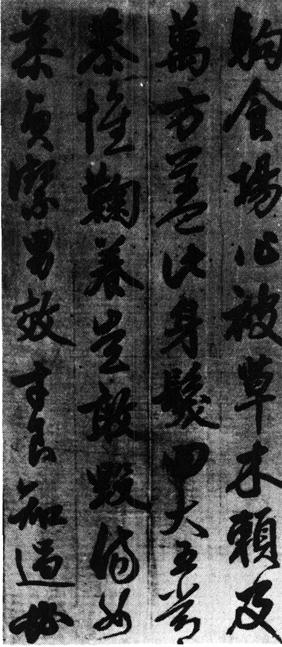 駒食場化被草木賴及
萬方蓋此身髮四大五常
恭惟鞠養豈敢毀傷女
慕貞潔男效才良知過必